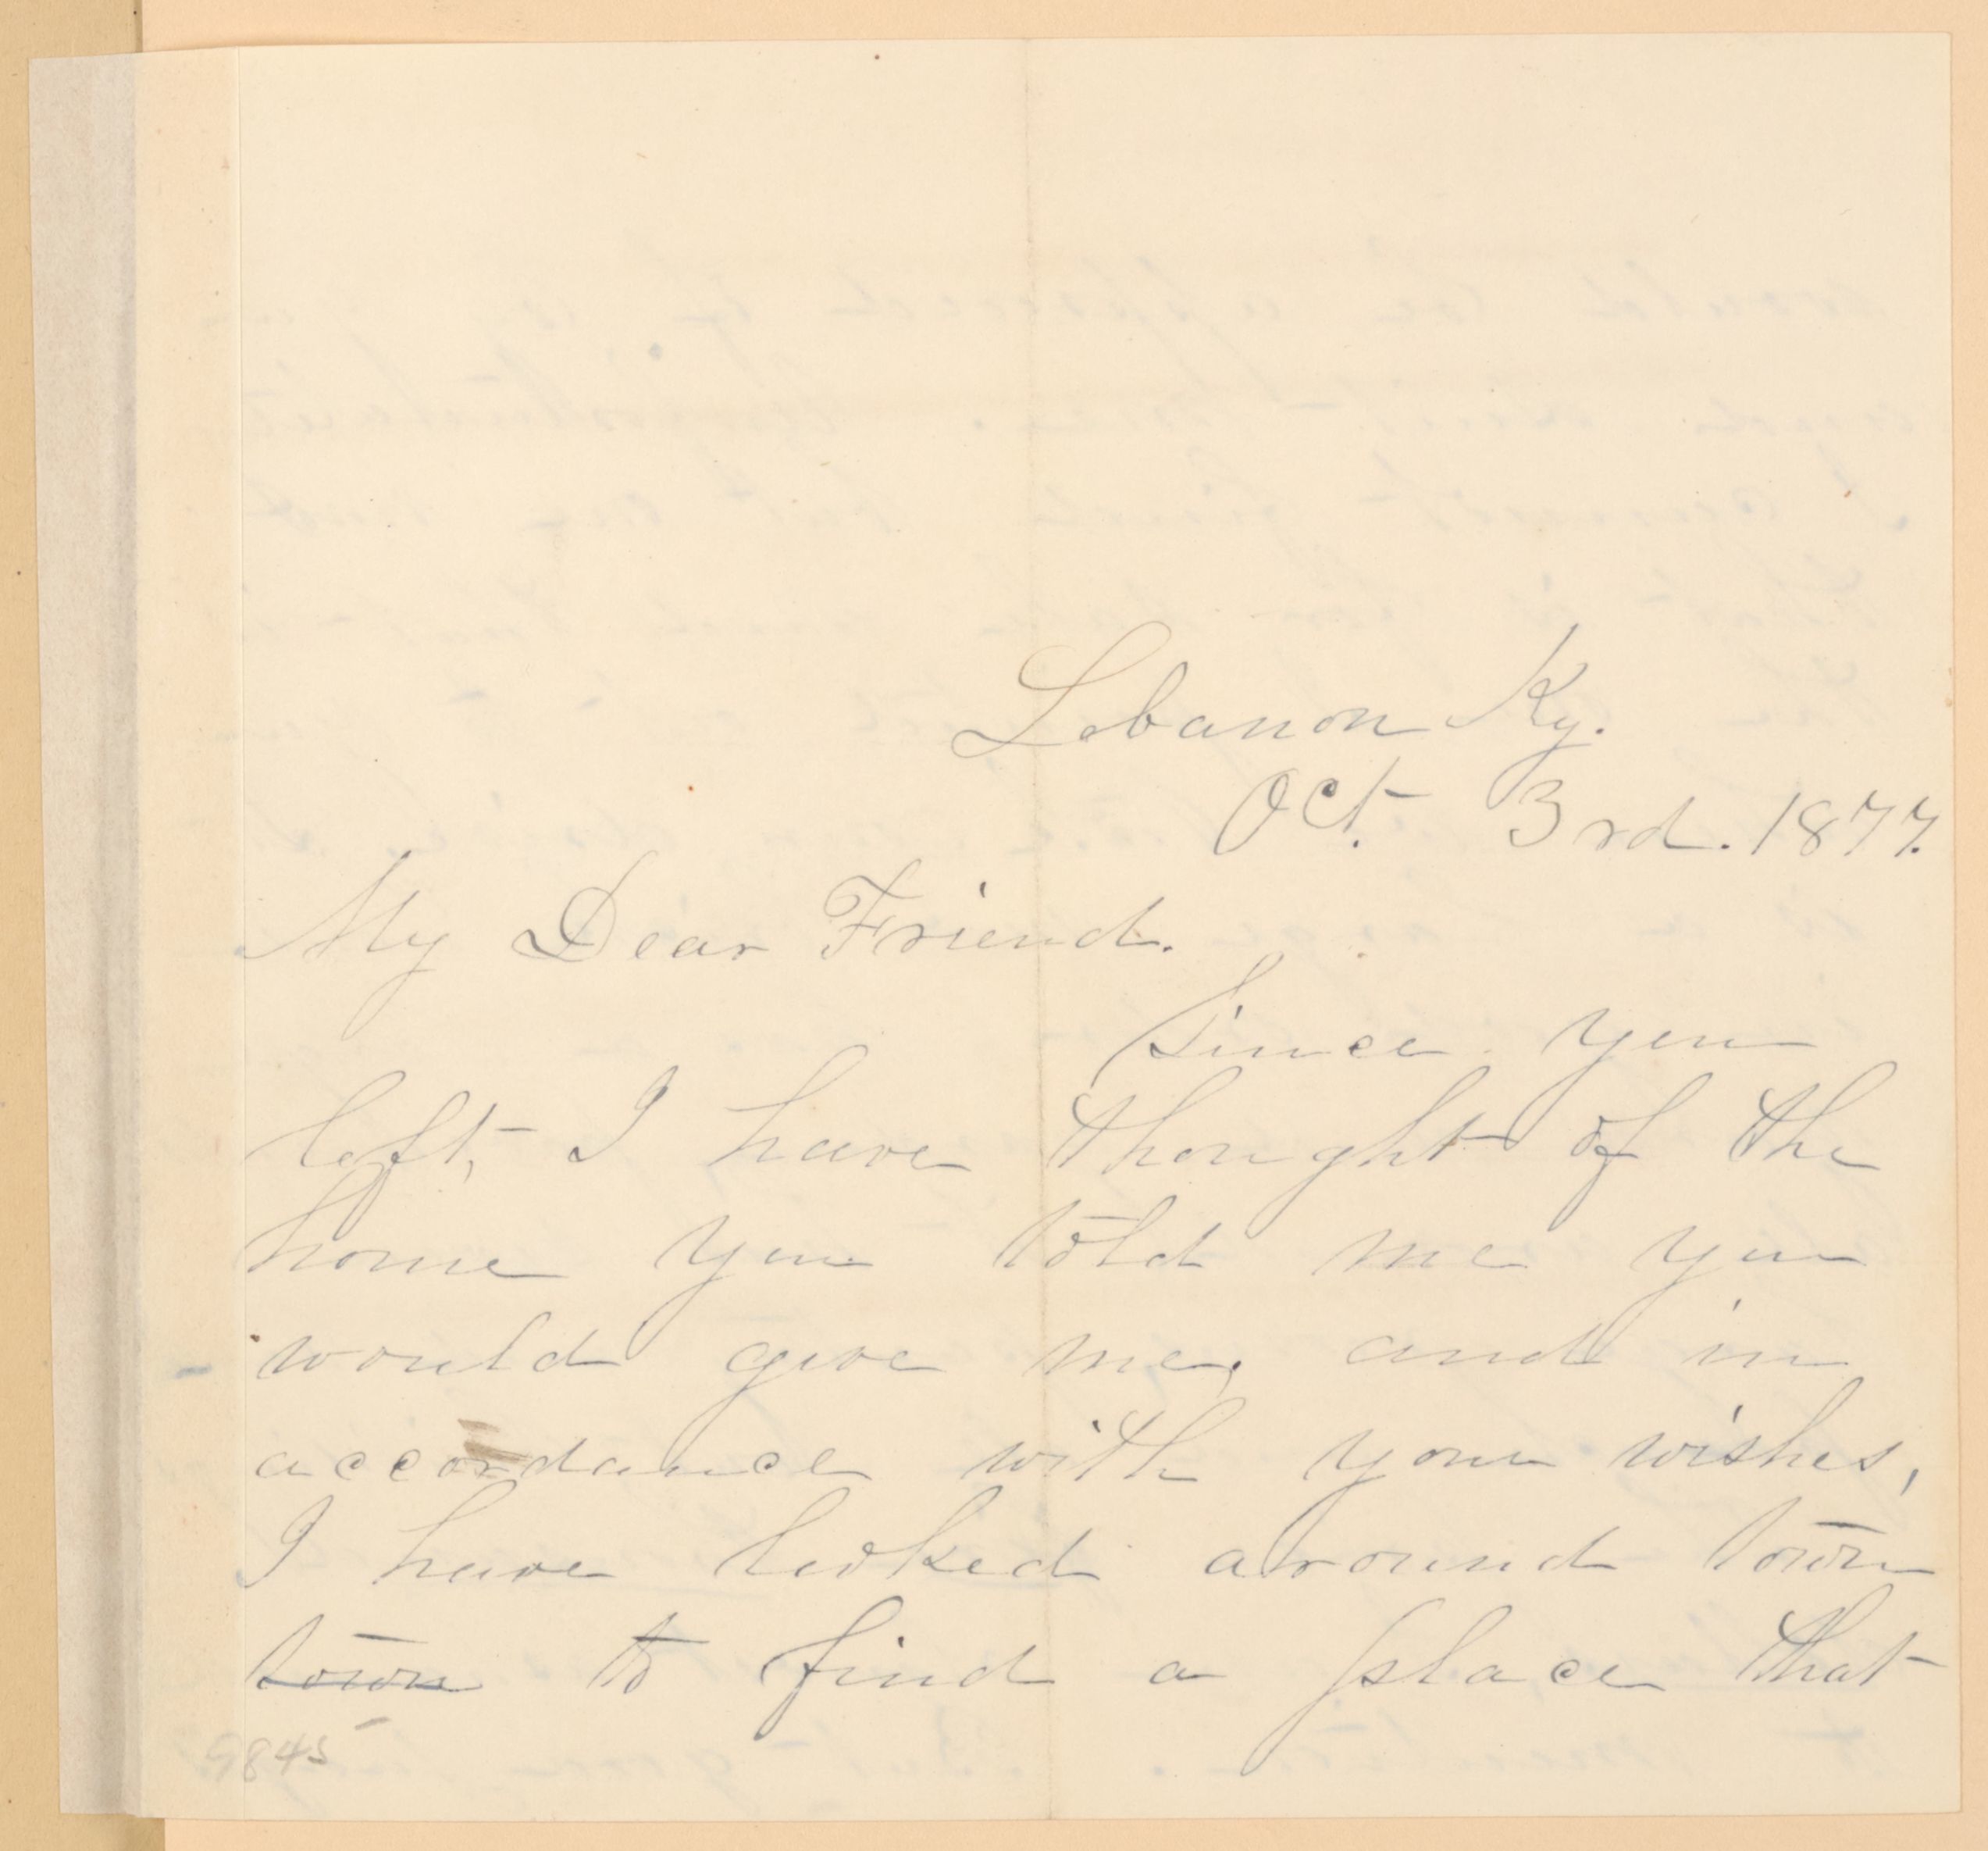 Lebanon Ky.
Oct. 3rd. 1877.
My Dear Friend.
Since you
left, I have thought of the
home you told me you
would give me, and in
accordance with your wishes,
I have looked around town
town to find a place that
9845